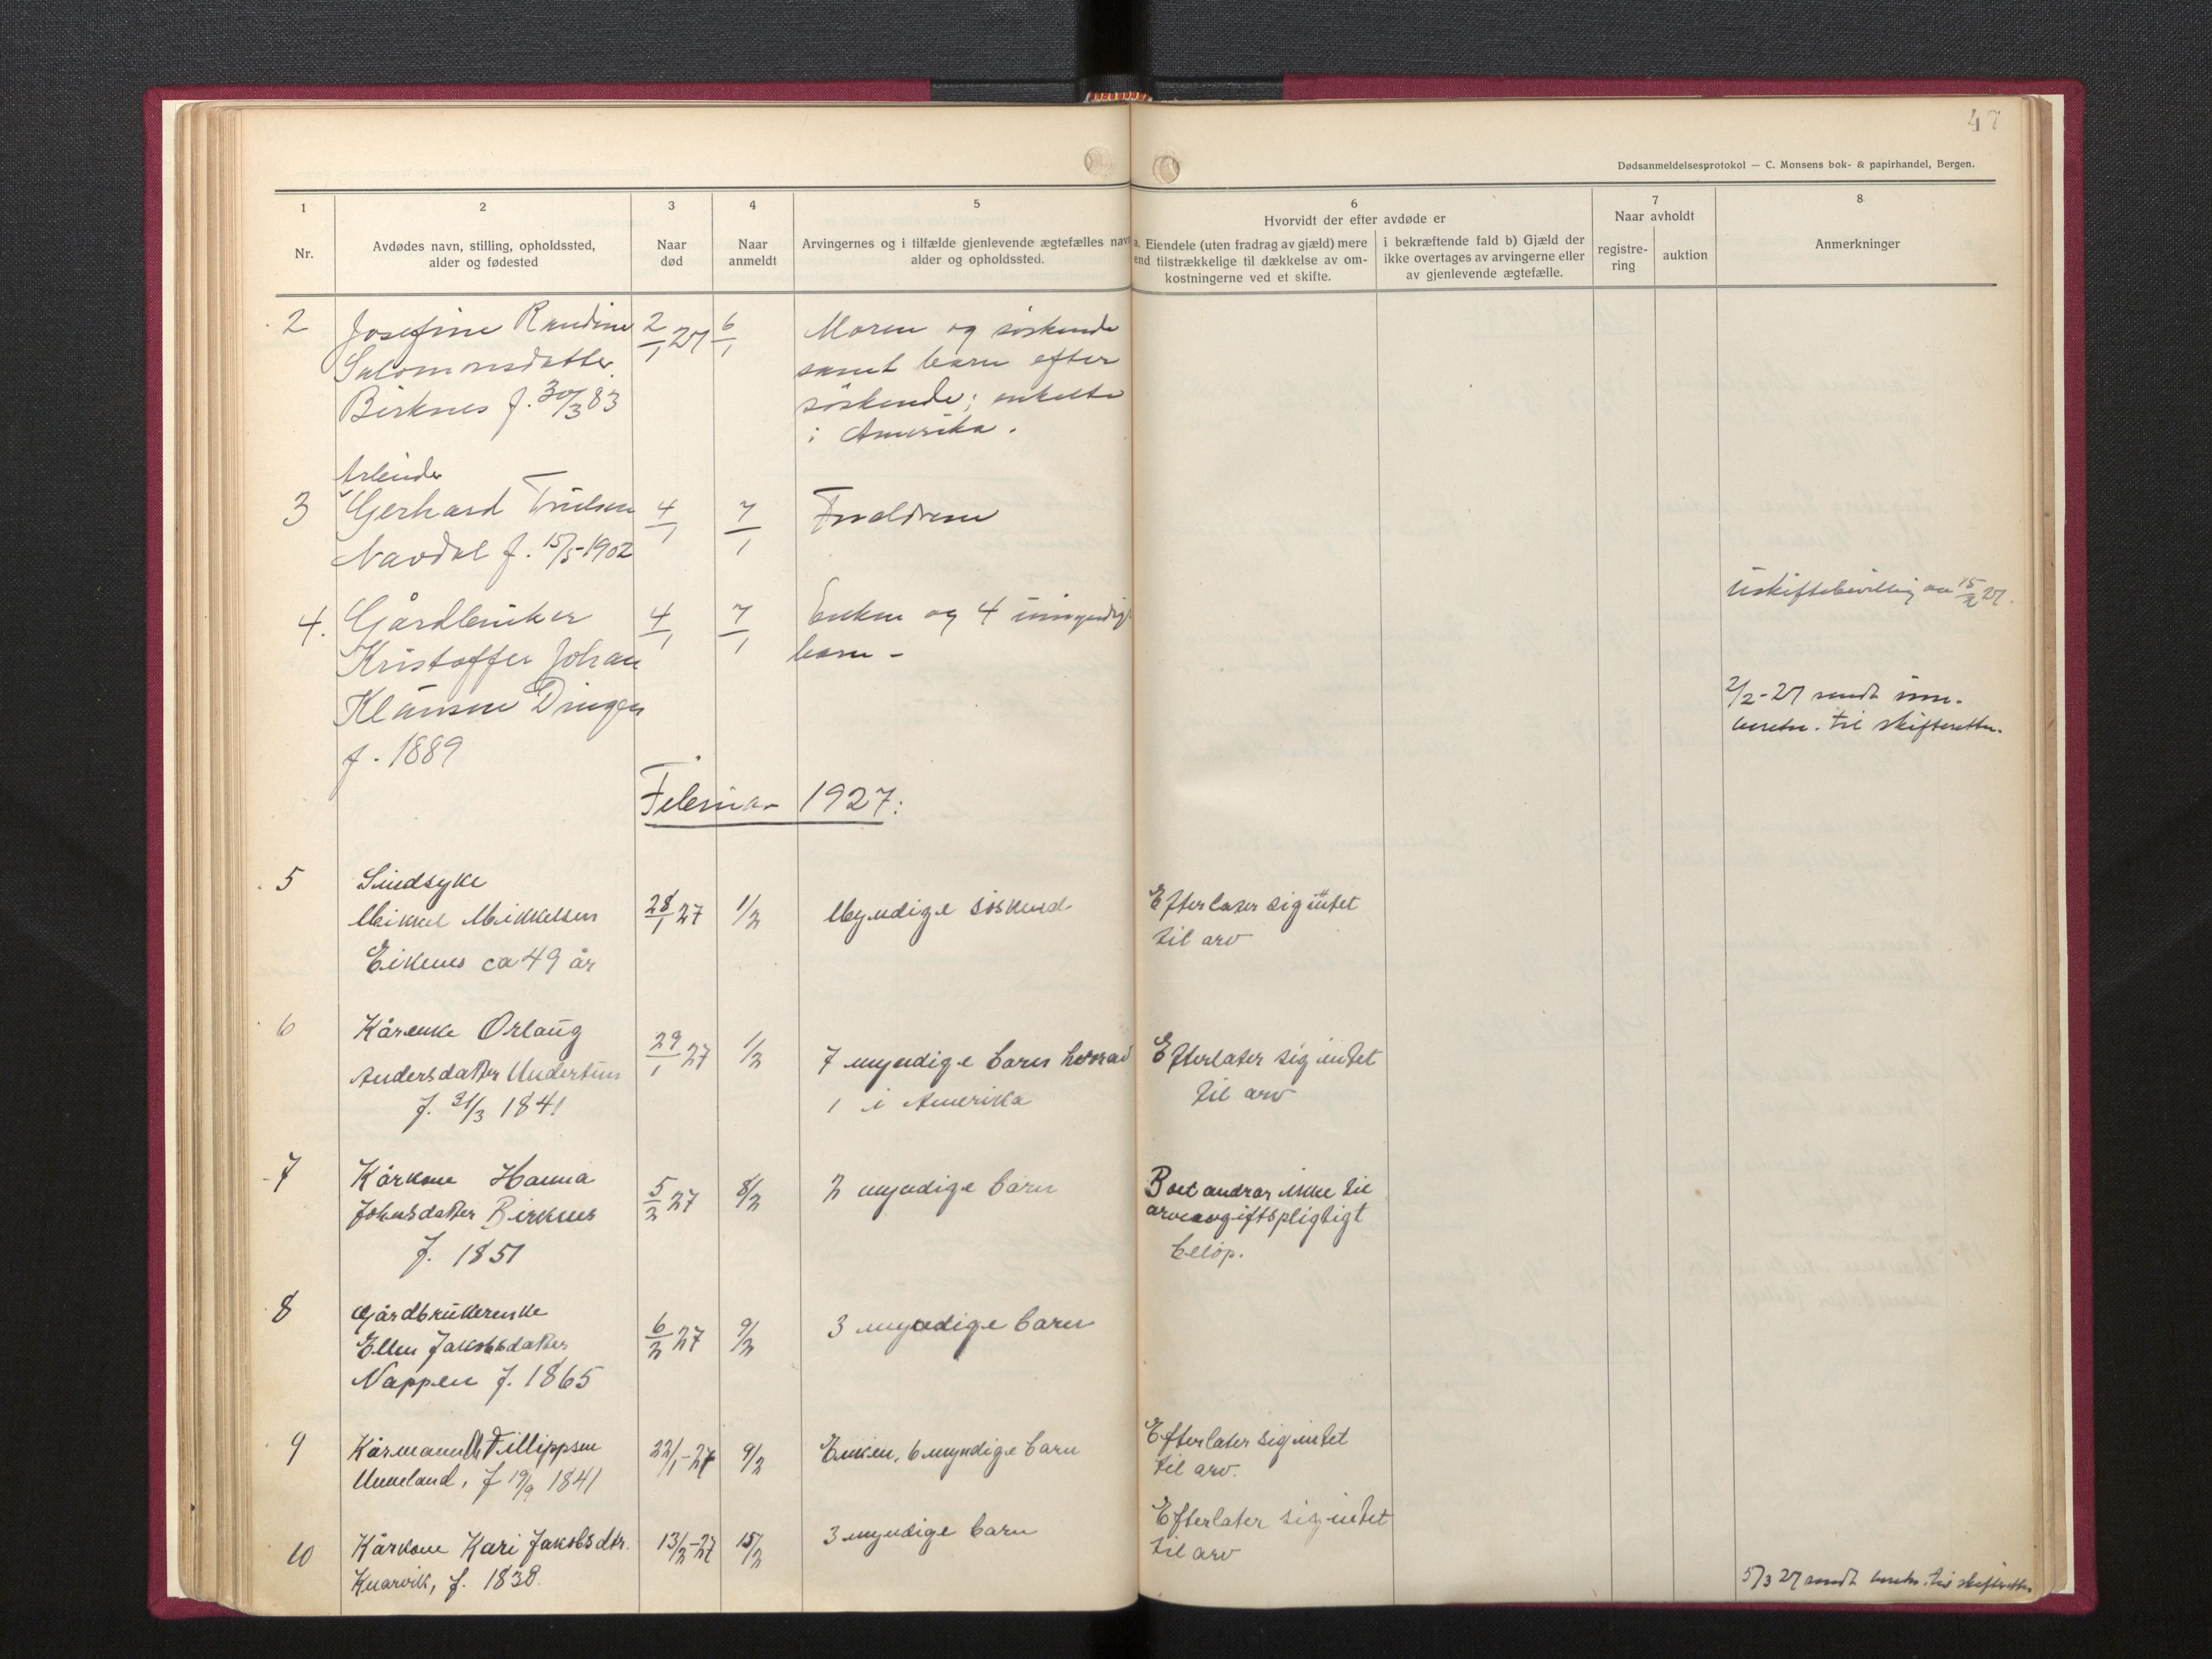 47
Dødsanmeldelsesprotokol — C. Monsens bok- & papirhandel, Bergen.
1
Nr.
2
Avdødes navn, stilling, opholdssted,
alder og fødested
3
Naar
død
4
Naar
anmeldt
5
Arvingernes og i tilfælde gjenlevende ægtefælles navn
alder og opholdssted.
6
Hvorvidt der efter avdøde er
a. Eiendele (uten fradrag av gjæld) mere
end tilstrækkelige til dækkelse av om-
kostningerne ved et skifte.
i bekræftende fald b) Gjæld der
ikke overtages av arvingerne eller
av gjenlevende ægtefælle.
7
Naar avholdt
registre-
ring
auktion
8
Anmerkninger
2
Josefine Randine
Salomonsdatter
Birknes f. 30/3 83
2/1 27
6/1
Moren og søskende
samt barn efter
søskende; enkelte
i Amerika.
3
Arbeider
Gerhard Trulsen
Navdal f. 15/5-1902
4/1
7/1
Forældrene
4.
Gårdbruker
Kristoffer Johan
Klausen Dingen
f. 1889
4/1
7/1
Enken og 4 umyndige
barn -
Uskiftebevilling av 15/2 27.
2/2-27 sendt inn-
beretn. til skifteretten.
Februar 1927:
5
Sindsyke
Mikkel Mikkelsen
Eikenes ca 49 år
28/1 27
1/2
Myndige søskend
Efterlater sig intet
til arv
6
Kårenke Orlaug
Andersdatter Undertun
f. 31/3 1841
29/1 27
1/2
7 myndige barn hvorav
1 i Amerika
Efterlater sig intet
til arv
7
Kårkone Hanna
Johnsdatter Birknes
f. 1851
5/2 27
8/2
2 myndige barn
Boet andrar ikke til
arveavgiftspligtigt
beløp.
8
Gårdbrukerenke
Ellen Jakobsdatter
Nappen f. 1865
6/2 27
9/2
3 myndige barn
9
Kårmann Fillippsen
Unneland, f 19/9 1841
22/1-27
9/2
Enken, 6 myndige barn
Efterlater sig intet
til arv.
10
Kårkone Kari Jakobsdtr.
Knarvik, f. 1838.
13/2-27
15/2
3 myndige barn
Efterlater sig intet
til arv
5/3 27 sendt beretn. til skifteretten